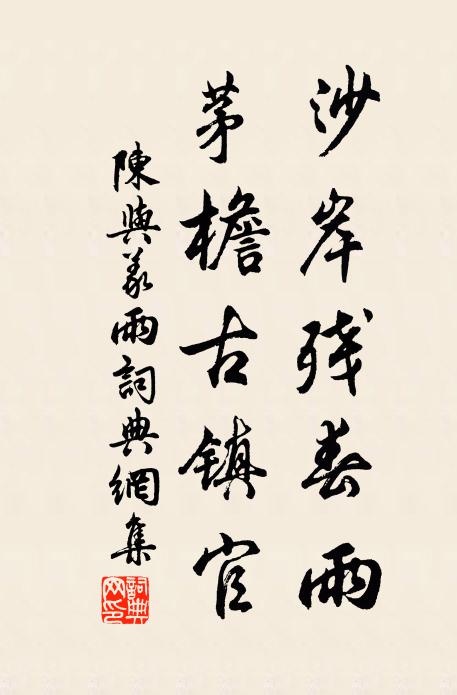 沙岸残春雨
茅檐古镇官
陳與義雨詞典網集
詞典網印